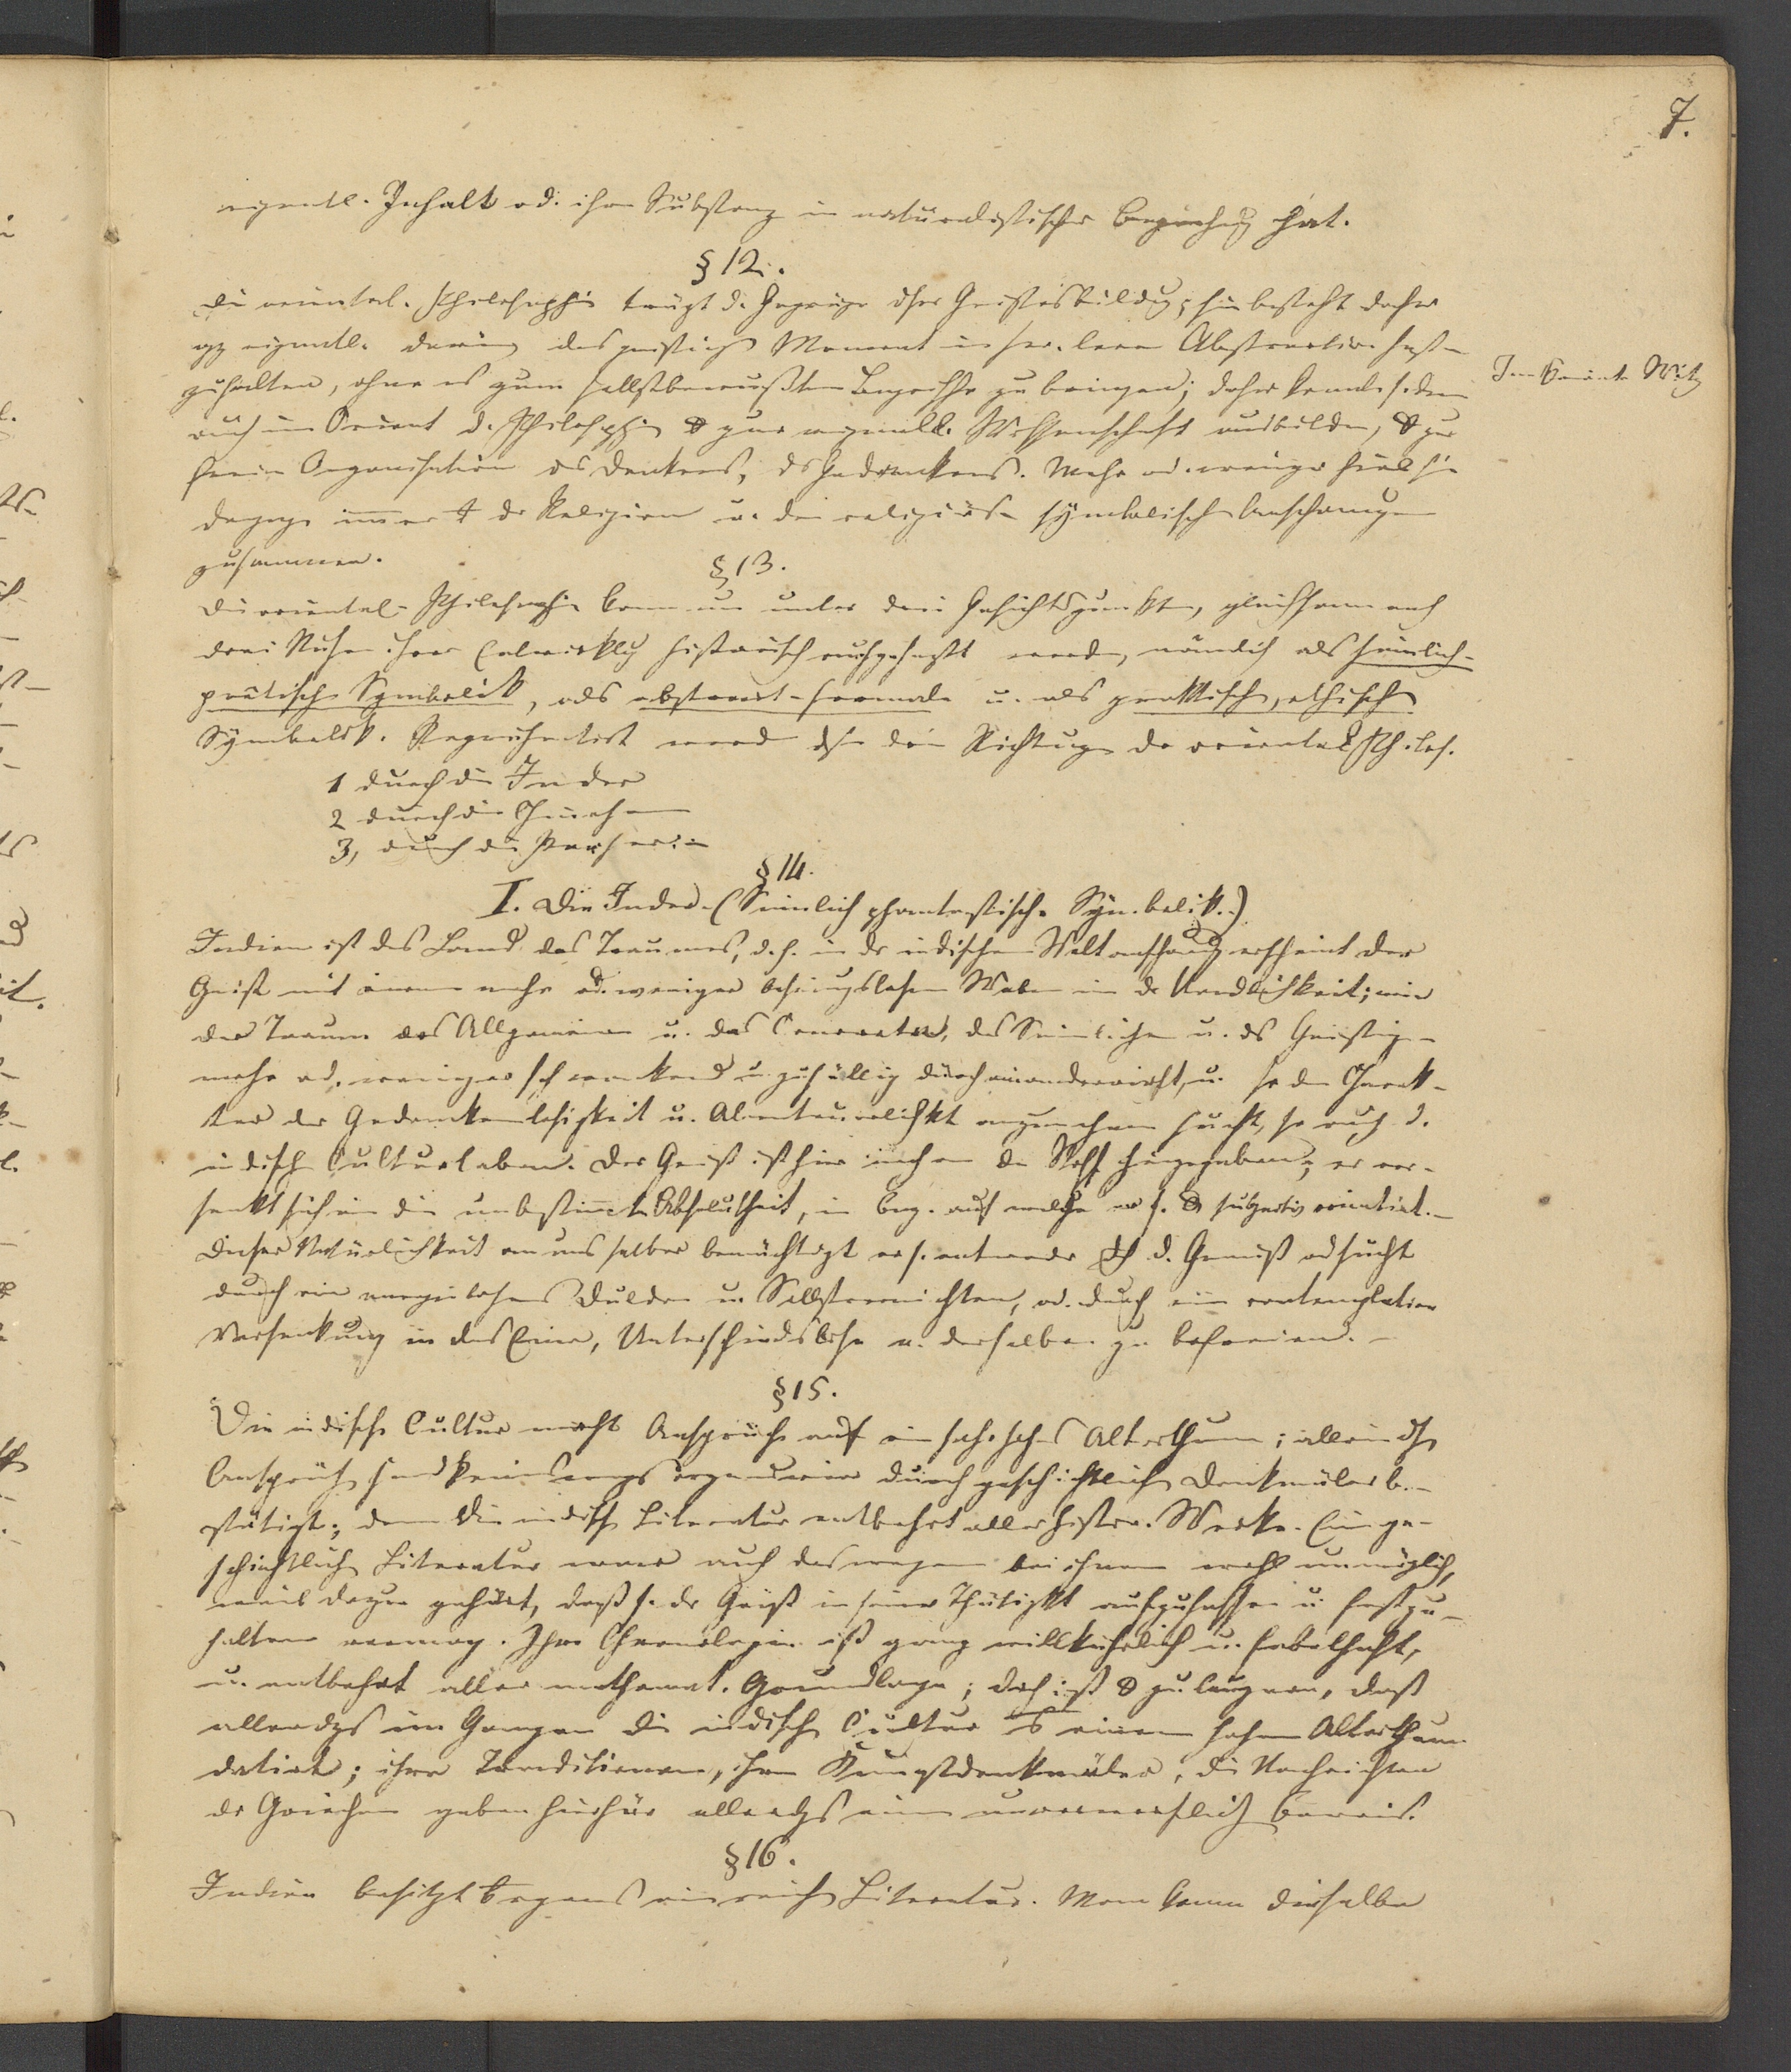 7.
eigentl. Inhalt od. ihre Substanz in naturalistischer Beziehung hat.
§ 12.
Die oriental. Philosophie trägt d. Gepräge dser Geistesbildung; sie besteht daher
eigentl. darin, das geistige Moment in sr. leeren Abstraction fest-
zuhalten, ohne es zum selbstbewußten Begriffe zu bringen; daher konnte s. denn
auch im Orient d. Philosophie zur eigentl. Wissenschaft ausbilden, zur
freien Organisation des Denkens, ds Gedankens. Mehr od. weniger fiel sie
dagegen immer der Religion u. den religiösen symbolischen Anschauungen
zusammen.
§ 13.
Die oriental. Philosophie kann nun unter drei Gesichtspunkten, gleichsam nach
drei Stufen ihrer Entwicklg historisch aufgefaßt werden, nämlich als sinnlich-
poetische Symbolik, als abstract-formale u. als praktisch, ethische
Symbolik. Repräsentirt werden dse drei Richtungen der oriental. Philos.
1 durch die Inder
2 durch die Chinesen
3, durch die Perser
§ 14.
I. Die Inder. (Sinnlich phantastische Symbolik.)
Indien ist das Land des Traumes, d. h. in der indischen Weltanschaug erscheint der
Geist mit einem mehr od. weniger Weben in der Endlichkeit; wie
der Traum das Allgemeine u. das Concrete, das Sinnliche u. das Geistige
mehr od. weniger schwankend u. zufällig durcheinanderwirft, u. so den Charak-
ter der Gedankenlosigkeit u. Abenteuerlichkt anzunehmen sucht, so auch d.
indische Culturleben. Der Geist ist hier noch an den Stoff hingegeben; er ver-
senkt sich in die unbestimmte Absolutheit, in Bez. auf welche er s. subjectiv orientirt.
Dieser Natürlichkeit an uns selber bemächtigt er s. entweder d. Genuß od sucht
durch ein energieloses Dulden u. Selbstvernichten, od. durch eine contemplative
Versenkung in das Eine, Unterschiedslose v. derselben zu befreien. –
§ 15.
Die indische Cultur macht Ansprüche auf ein sehr hohes Alterthum; allein dse
Ansprüche sind keineswegs durch geschichtliche Denkmäler be-
stätigt; denn die indische Literatur entbehrt aller histor. Werke. Eine ge-
schichtliche Literatur war auch deswegen bei ihnen wohl unmöglich,
weil dazu gehört, daß s. der Geist in seiner Thätigkt aufzufassen u. festzu-
halten vermag. Ihre Chronologie ist ganz willkührlich u. fabelhaft,
u. entbehrt aller mathemat. Grundlage; doch ist zu leugnen, daß
allerdgs im Ganzen die indische Cultur einem hohen Alterthum
datirt; ihre Traditionen, ihre Kunstdenkmäler, die Nachrichten
der Griechen geben hierfür allerdgs einen unverwerflich Beweis.
§ 16.
Indien besitzt eine reiche Literatur. Man kann dieselbe